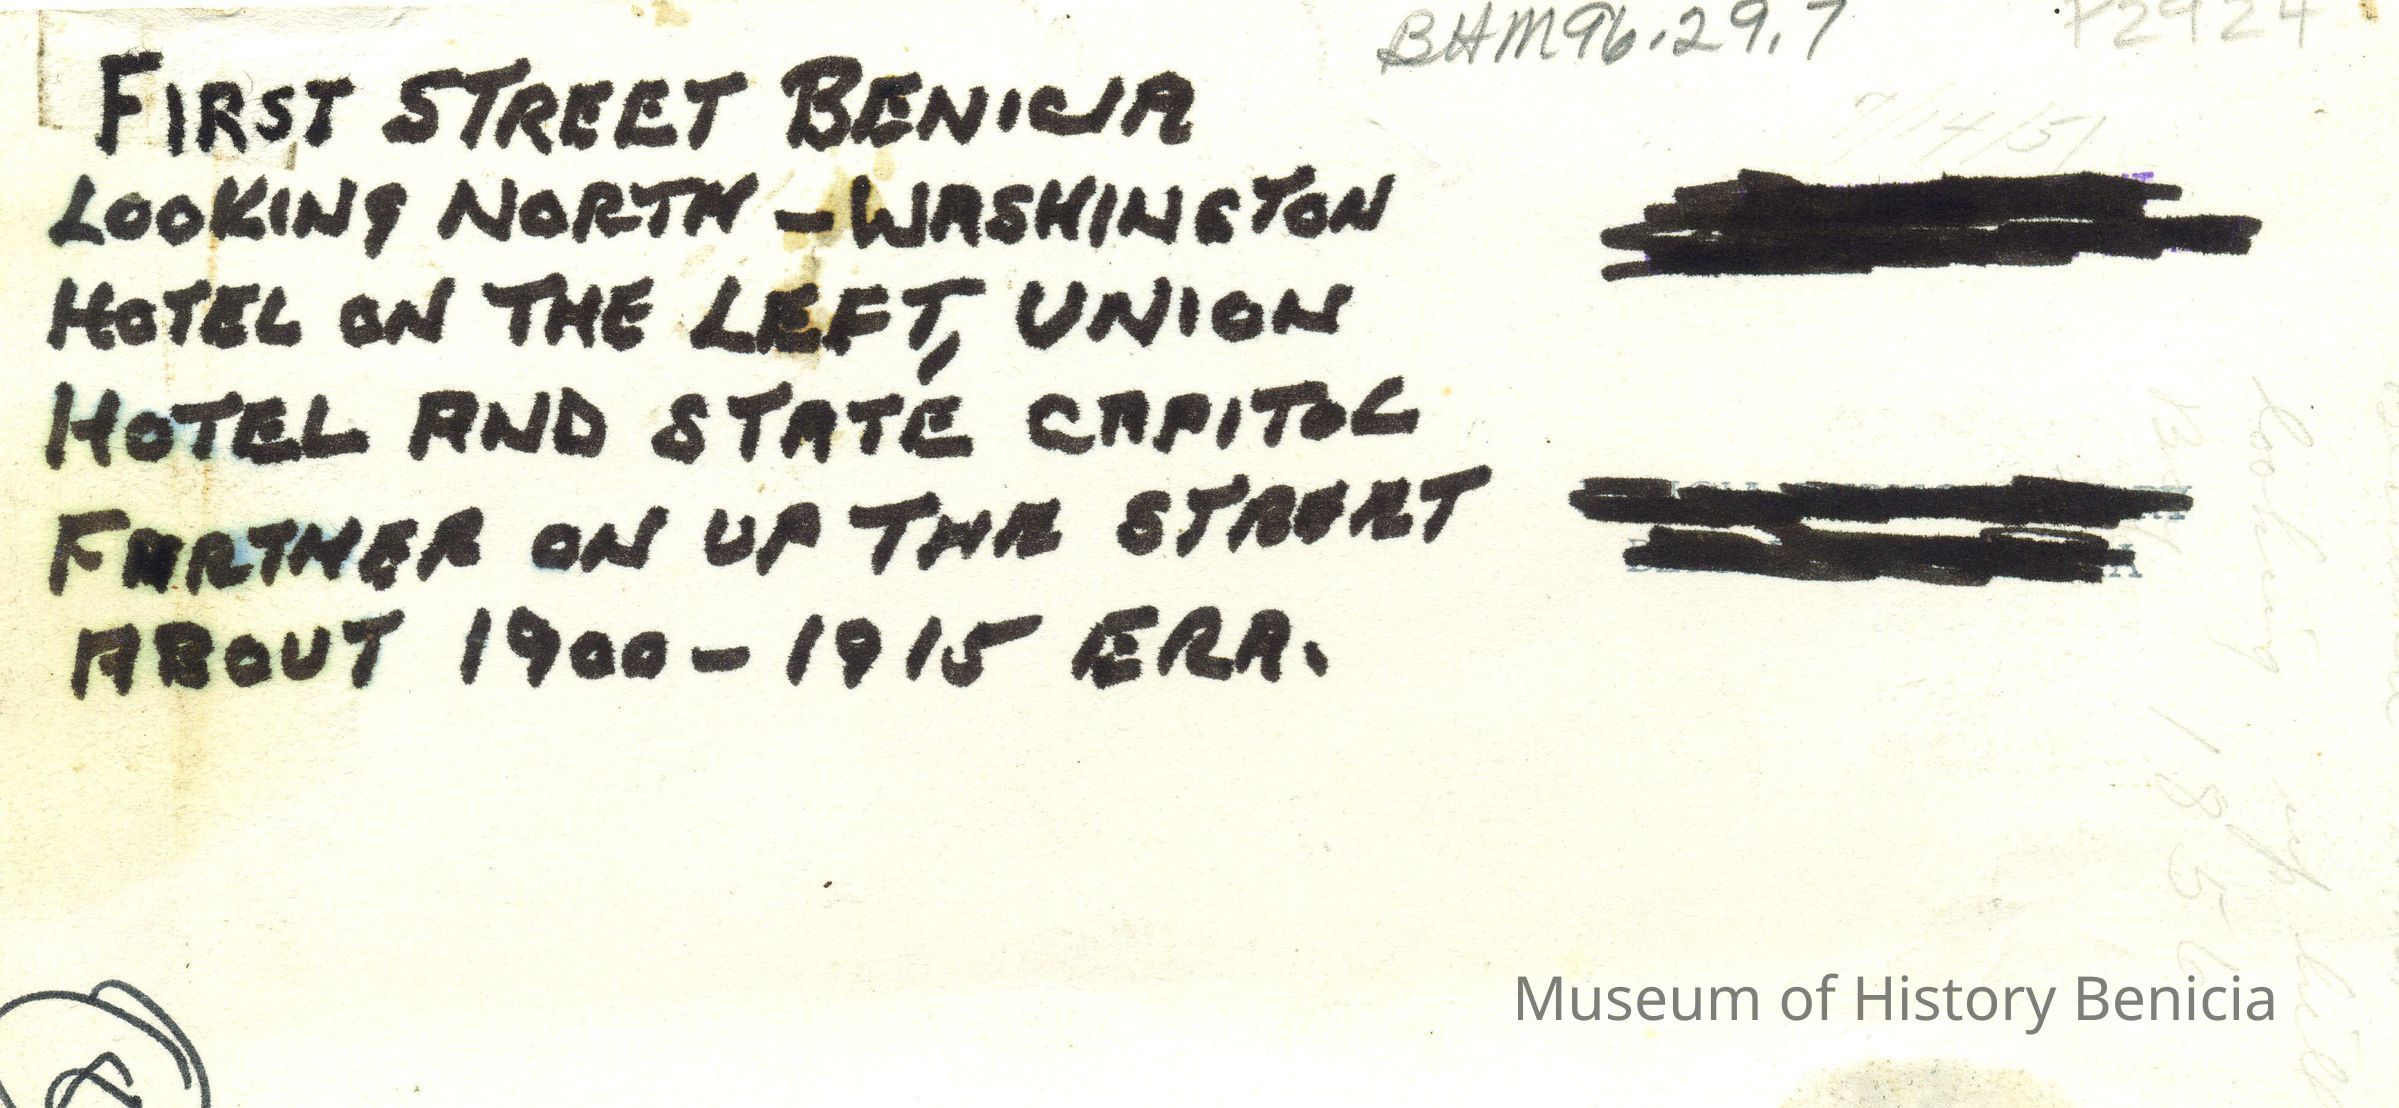 BHM96.29.7
P2924
FIRST STREET BENICIA
7/14/51
LOOKING NORTH - WASHINGTON
HOTEL ON THE LEFT, UNION
HOTEL AND STATE CAPITOL
FARTHER ON UP THE STREET
ABOUT 1900 - 1915 ERA.
looking up hill
1856
Museum of History Benicia